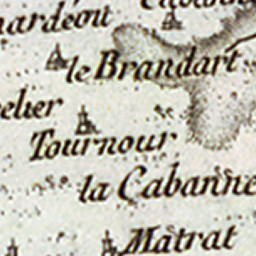 ardéou
le Brandart
elier
Tournour
la Cabanne
Matrat